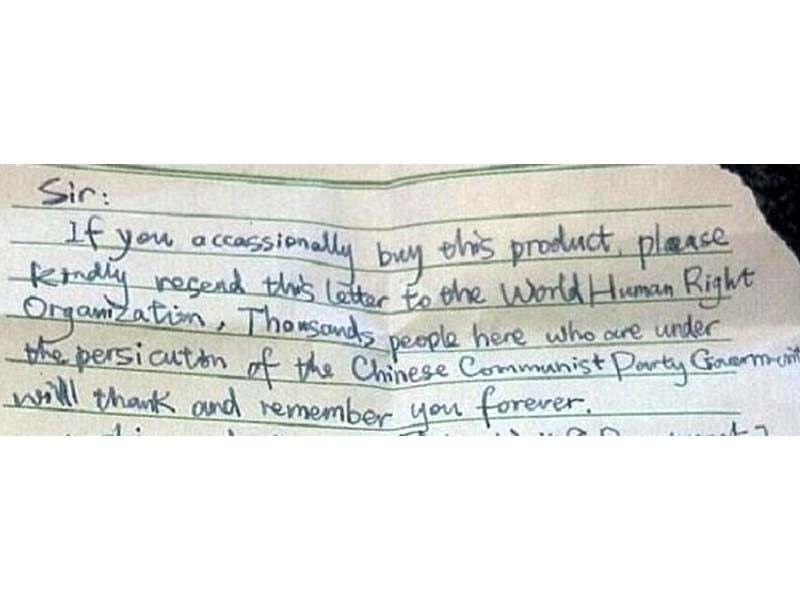 Sir:
If you accassionally buy this product, please
kindly resend this letter to the World Human Right
Organization, Thousands people here who are under
the persicution of the Chinese Communist Party Government
will thank and remember you forever.